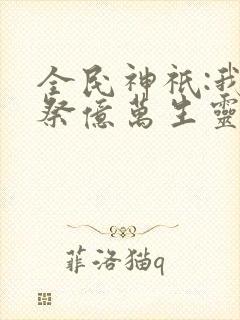 全民神祇:我
祭億萬生靈
菲洛猫q